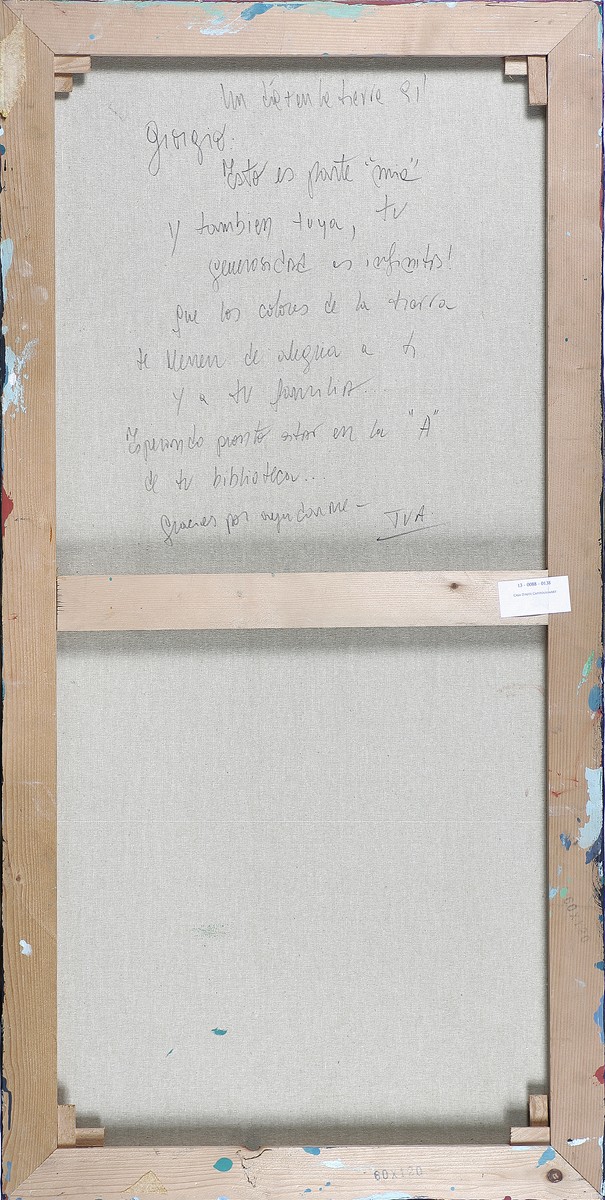 Un día en la tierra 91'
Giorgio.
Esto es parte "mia"
y tambien tuya, tu
generosidad es infinita!
que los colores de la tierra
te llenen de alegria a ti
y a tu familia...
Esperando pronto estar en la "A"
de tu biblioteca...
Gracias por ayudarme - TuA
60x120
60x120